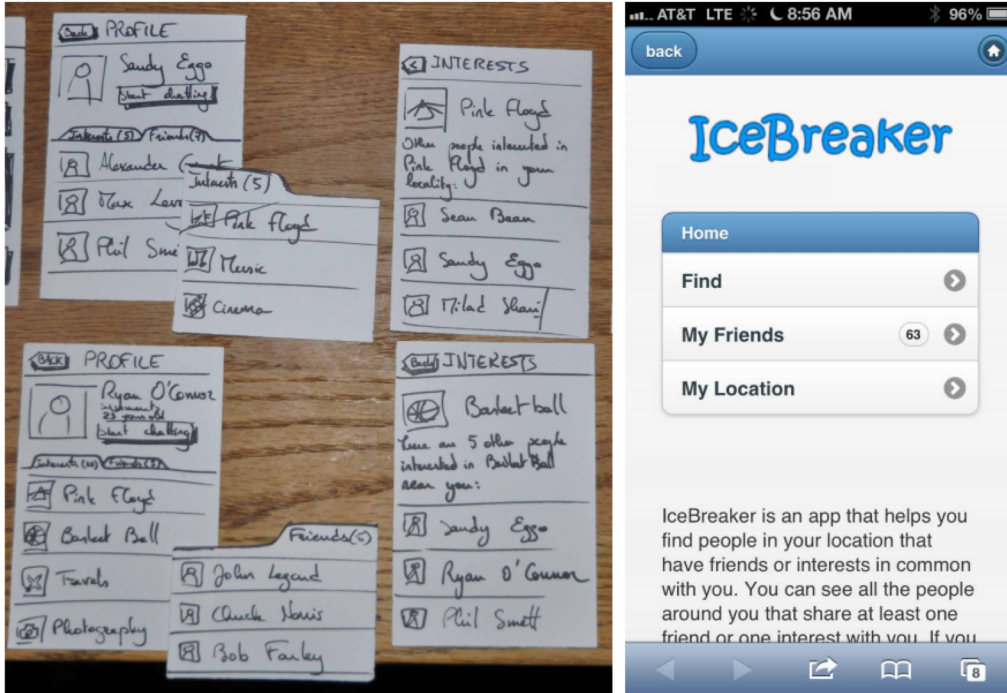 Back PROFILE
Sandy Eggo
Start chatting
Interests (5) Friends (7)
Alexander
Max
Phil
Interests (5)
Pink Floyd
Music
Cinema
< INTERESTS
Pink Floyd
Other people interested in
Pink Floyd in your
locality:
Sean Bean
Sandy Eggo
Milad
BACK PROFILE
Ryan O'Connor
23 years old
Start chatting
Interests (10) Friends
Pink Floyd
Basket Ball
Travels
Photography
Friends
John Legend
Chuck Norris
Bob Farley
Back INTERESTS
Basket ball
There are 5 other people
interested in Basket Ball
near you:
Sandy Eggo
Ryan O'Connor
Phil Smett
AT&T LTE 8:56 AM 96%
back
IceBreaker
Home
Find
My Friends 63
My Location
IceBreaker is an app that helps you
find people in your location that
have friends or interests in common
with you. You can see all the people
around you that share at least one
friend or one interest with you. If you
8